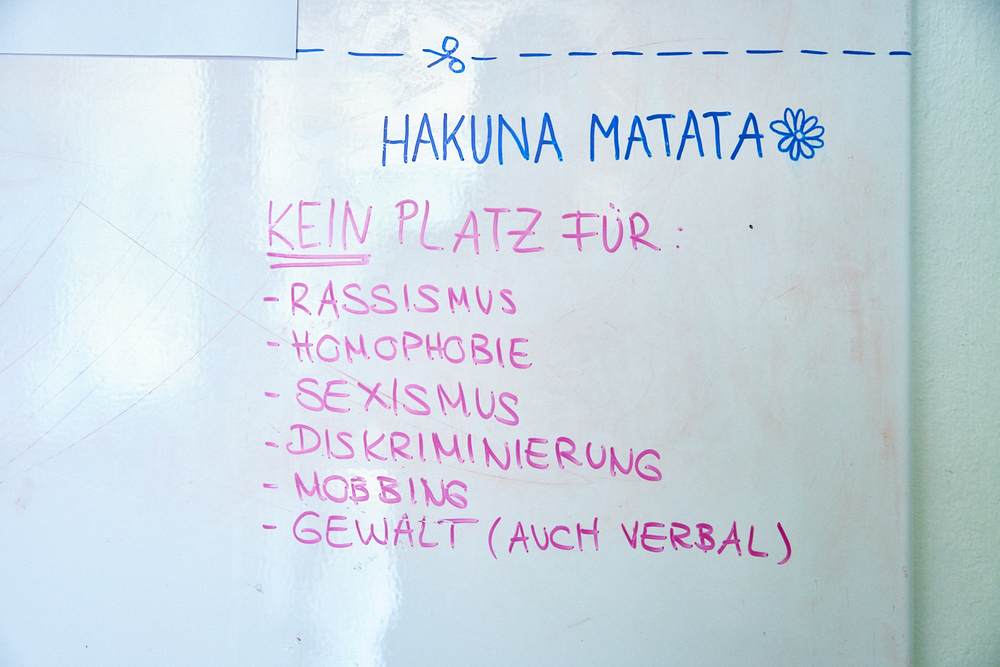 HAKUNA MATATA
KEIN PLATZ FÜR:
- RASSISMUS
- HOMOPHOBIE
- SEXISMUS
- DISKRIMINIERUNG
- MOBBING
- GEWALT (AUCH VERBAL)